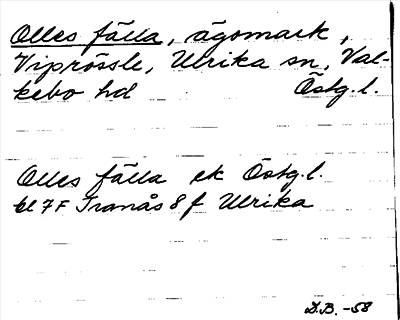 Olles fälla, ägomark,
Viprössle, Ulrika sn, Val-
kebo hd Östg.l.
Olles fälla ek Östg.l.
bl 7F Tranås 8 f Ulrika
D.B. -58